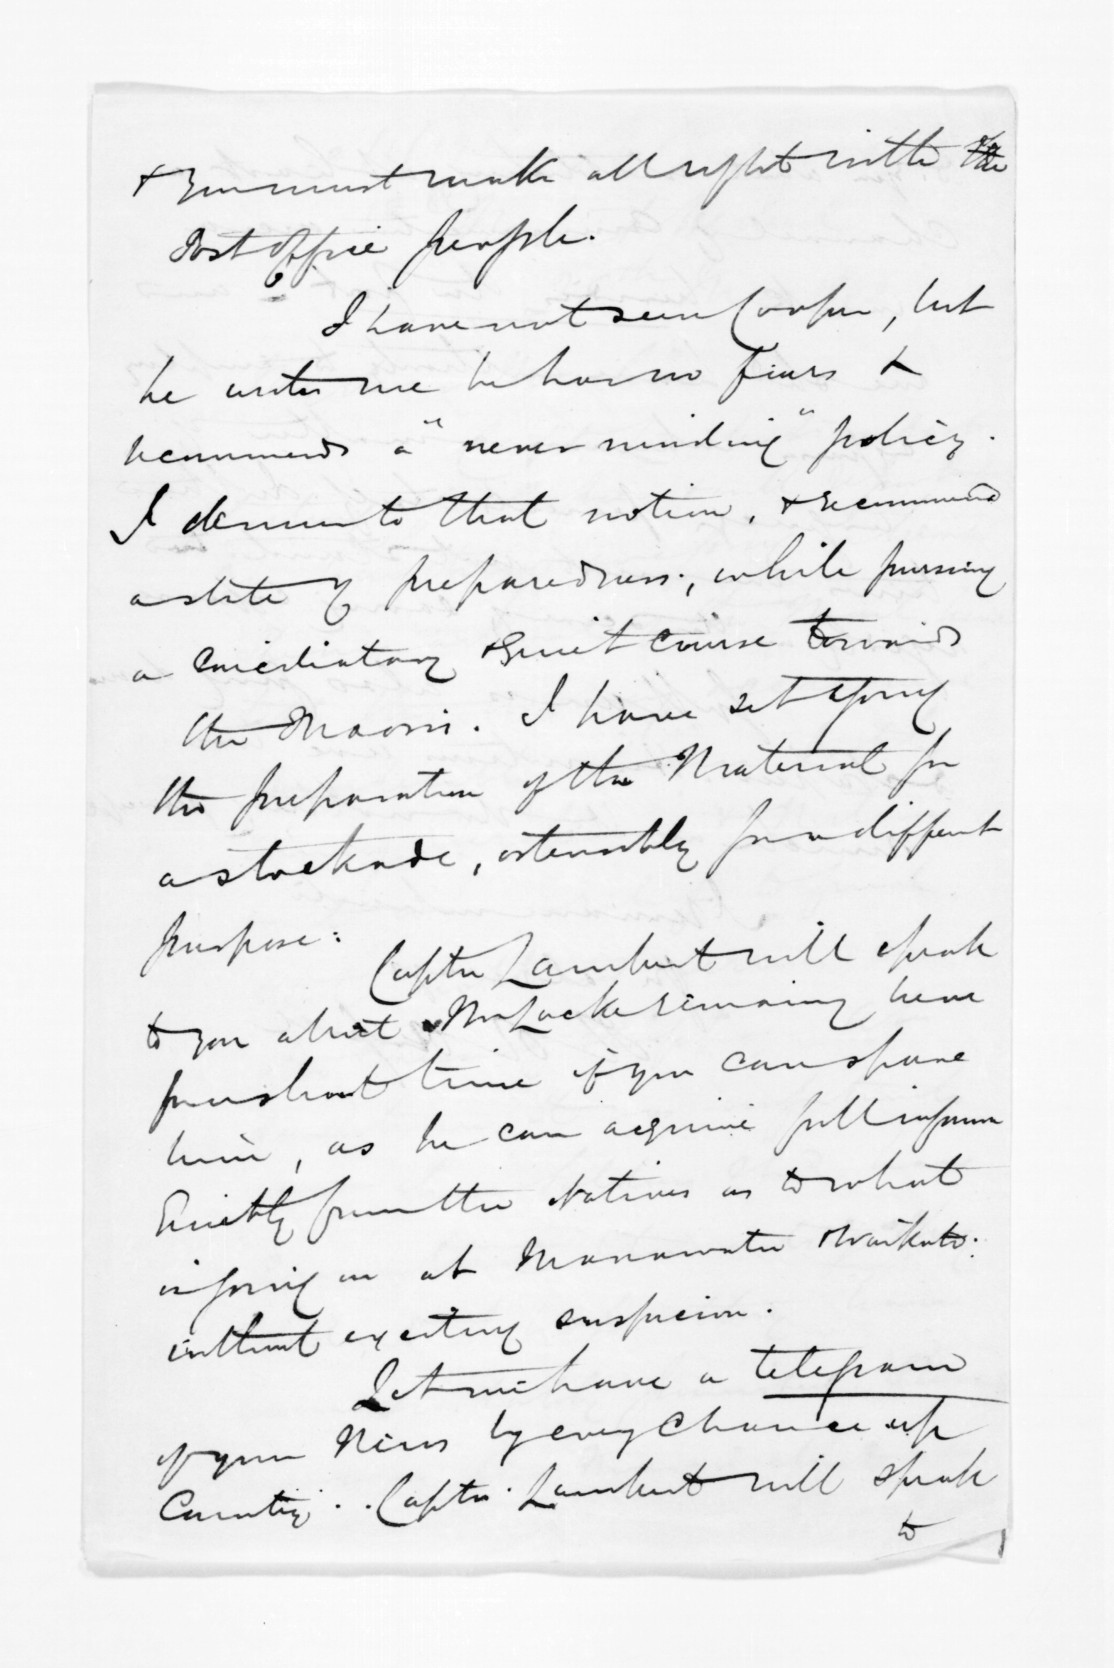 & you must make all right with the
Post Office people.
I have not seen Cooper, but
he writes me he has no fears &
recommends a "never minding" policy.
I demur to that notion, & recommend
a state of preparedness, while pursuing
a conciliatory & quiet course towards
the Maoris. I have set agoing
the preparation of the Material for
a stockade, ostensibly for a different
purpose:
Captn Lambert will speak
to you about Mr Locke remaining here
for a short time if you can spare
him, as he can acquire full inform
quietly from the Natives as to what
is going on at Manawatu & Waikato.
without exciting suspicion.
Let me have a telegram
of your News by every chance up
Country. Captn. Lambert will speak
to